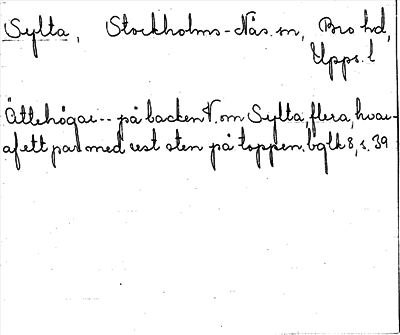 Sylta, Stockholms-Näs sn, Bro hd,
Upps. l
Ättehögar -- på backen V. om Sylta, flera, hvar-
af ett par med rest sten på toppen. bglk 8, s. 39